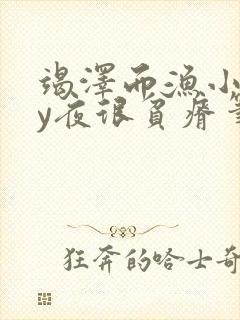 竭澤而漁小
y夜很負瘠筆
狂奔的哈士奇